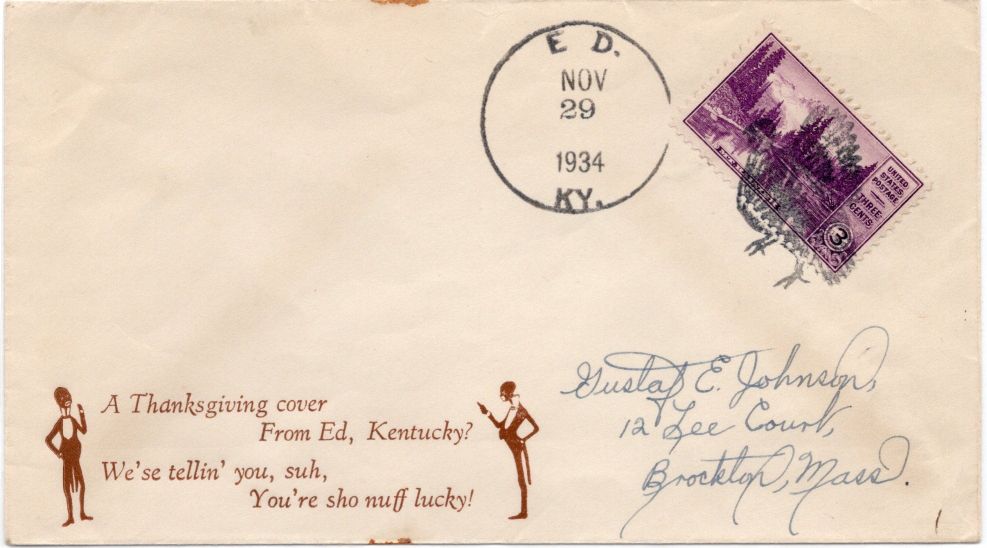 E D.
NOV
29
1934
KY.
UNITED
STATES
POSTAGE
THREE
CENTS
3
A Thanksgiving cover
From Ed, Kentucky?
We'se tellin' you, suh,
You're sho nuff lucky!
Gustaf E. Johnson,
12 Lee Court,
Brockton, Mass.